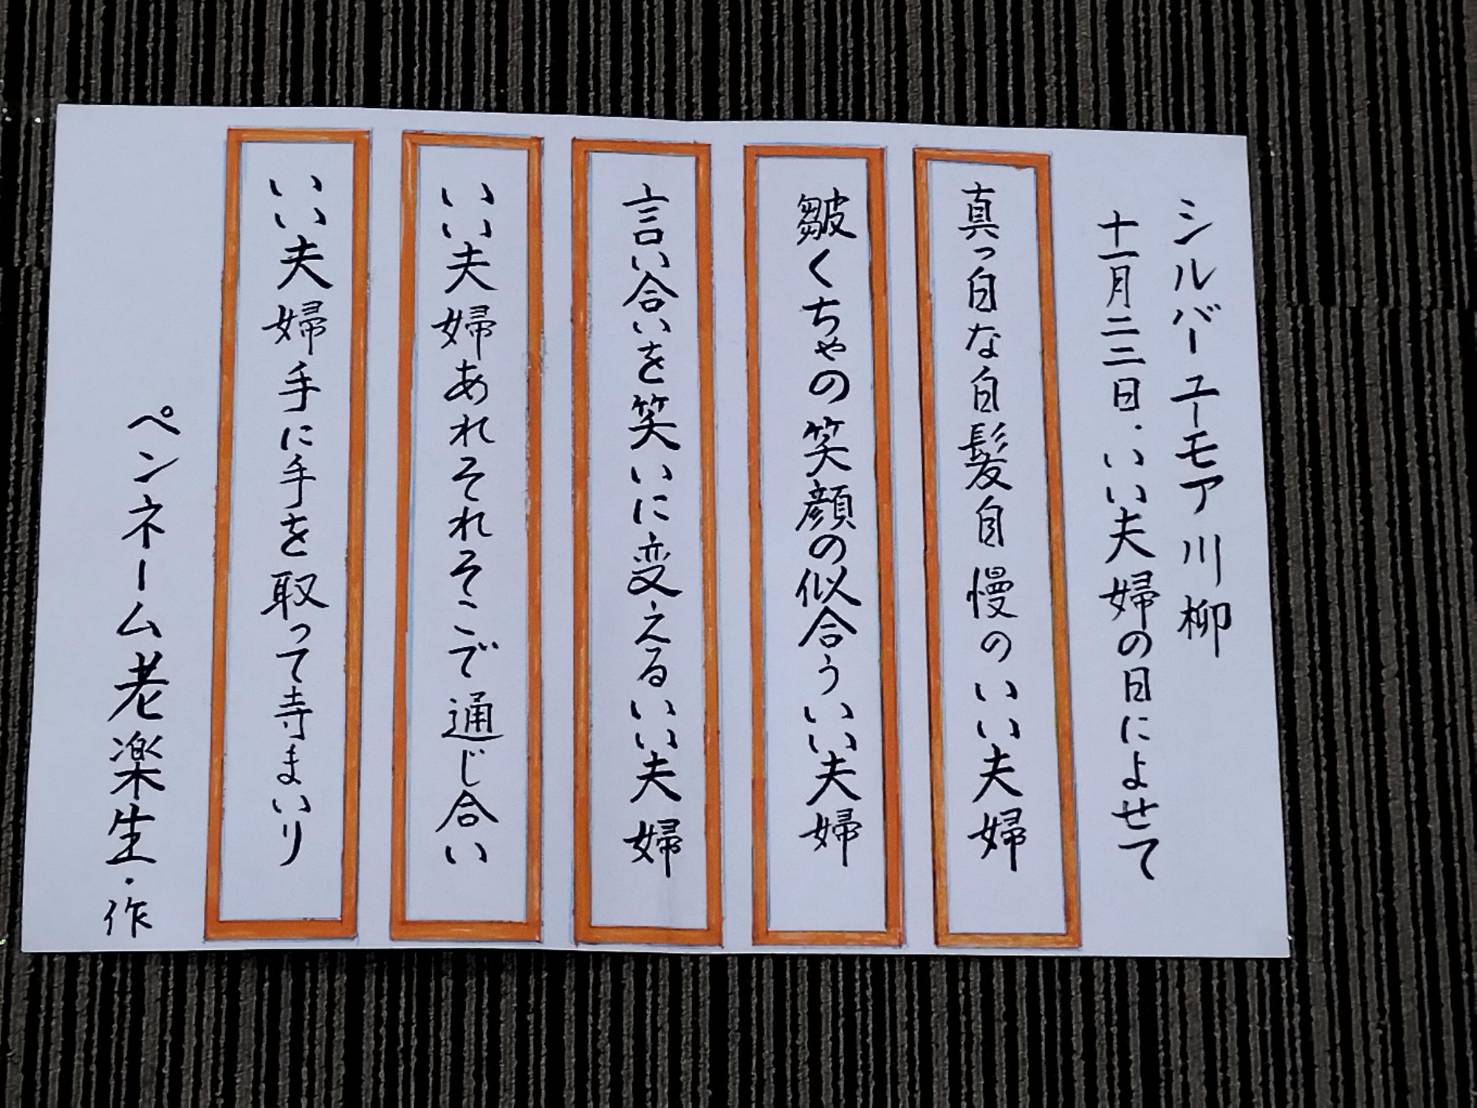 シルバーユーモア川柳
十一月二二日・いい夫婦の日によせて
真っ白な白髪自慢のいい夫婦
皺くちゃの笑顔の似合ういい夫婦
言い合いを笑いに変えるいい夫婦
いい夫婦あれそれそこで通じ合い
いい夫婦手に手を取って寺まいり
ペンネーム老楽生・作